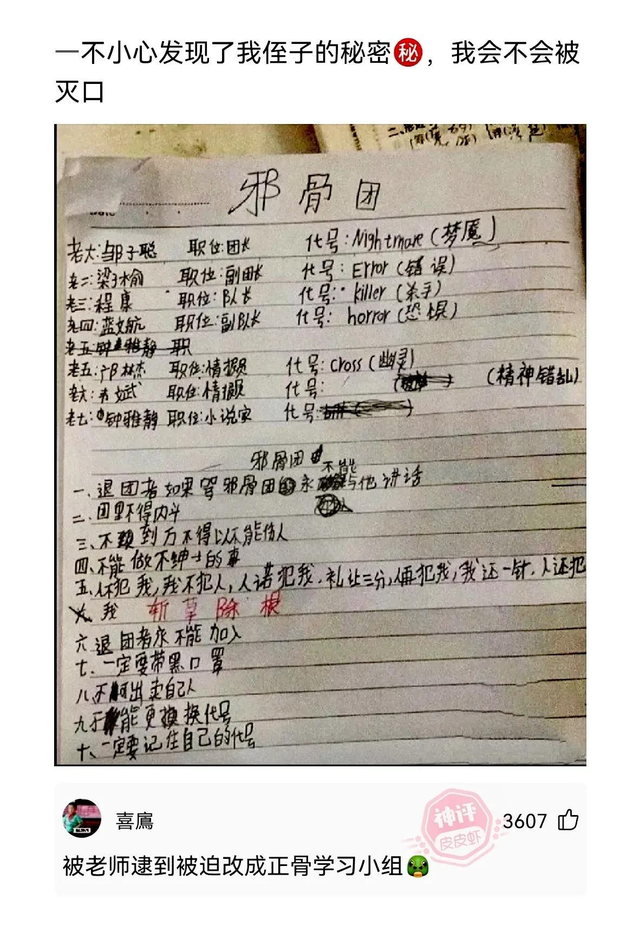 一不小心发现了我侄子的秘密㊙️，我会不会被
灭口
邪骨团
老大:邹子聪 职位:团长 代号:Nightmare(梦魇)
老二:梁子榆 职位:副团长 代号:Error(错误)
老三:程康 职位:队长 代号:killer(杀手)
老四:蓝文航 职位:副队长 代号:horror(恐惧)
老五钟雅静 职
老五:邝林杰 职位:情报员 代号:cross(幽灵)
老六:韦斌 职位:情报员 代号: (精神错乱)
老七:钟雅静 职位:小说家 代号:
邪骨团
一、退团者如果骂邪骨团永不能与他讲话
二、团里不得内斗
三、不到万不得以不能伤人
四、不能做不绅士的事
五、人不犯我,我不犯人,人若犯我,礼让三分,人再犯我,我还一针,人还犯
我 斩草除根
六退团者永不能加入
七、一定要带黑口罩
八不可出卖自己人
九不能更换代号
十、一定要记住自己的代号
喜鳸 神评 3607
皮皮虾
被老师逮到被迫改成正骨学习小组